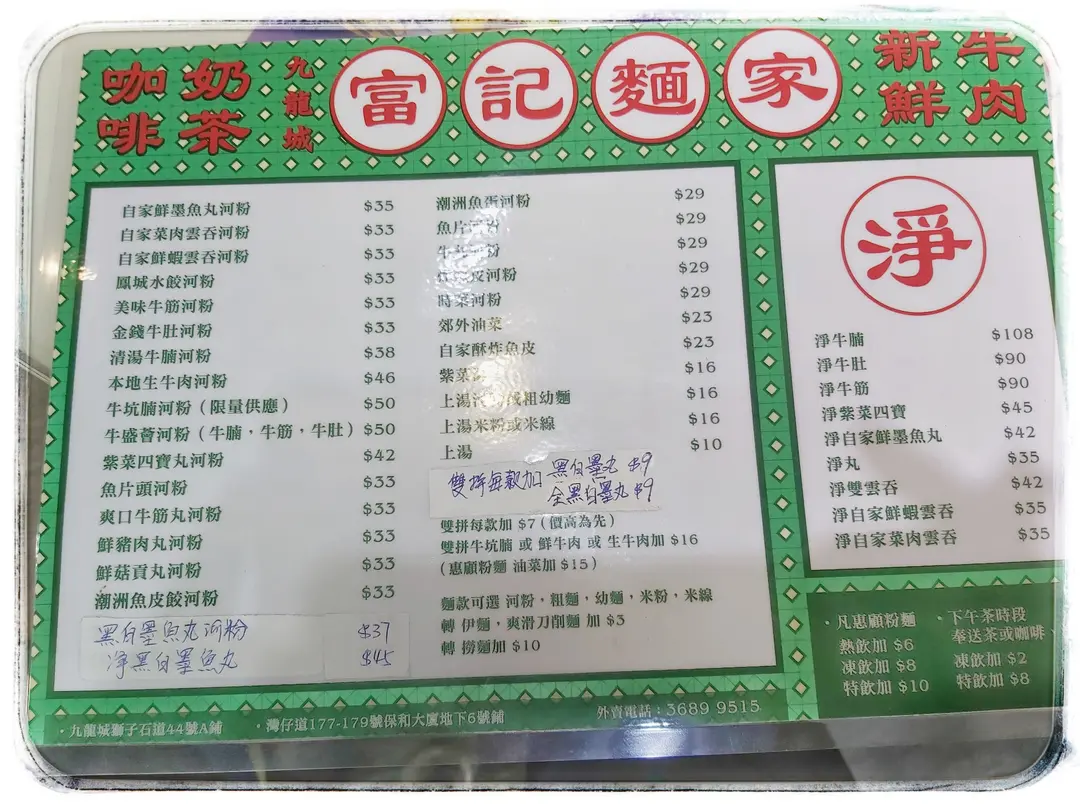 咖啡
奶茶
九龍城
富記麵家
新鮮
牛肉
自家鮮墨魚丸河粉 $35
自家菜肉雲吞河粉 $33
自家鮮蝦雲吞河粉 $33
鳳城水餃河粉 $33
美味牛筋河粉 $33
金錢牛肚河粉 $33
清湯牛腩河粉 $38
本地生牛肉河粉 $46
牛坑腩河粉（限量供應） $50
牛盛薈河粉（牛腩，牛筋，牛肚） $50
紫菜四寶丸河粉 $42
魚片頭河粉 $33
爽口牛筋丸河粉 $33
鮮豬肉丸河粉 $33
鮮菇貢丸河粉 $33
潮洲魚皮餃河粉 $33
黑白墨魚丸河粉 $37
淨黑白墨魚丸 $45
潮洲魚蛋河粉 $29
魚片河粉 $29
牛 河粉 $29
皮河粉 $29
時菜河粉 $29
郊外油菜 $23
自家酥炸魚皮 $23
紫菜 $16
上湯 粗幼麵 $16
上湯米粉或米線 $16
上湯 $10
雙拼每款加 黑白墨丸 $9
全黑白墨丸 $9
雙拼每款加 $7（價高為先）
雙拼牛坑腩 或 鮮牛肉 或 生牛肉加 $16
（惠顧粉麵 油菜加 $15）
麵款可選 河粉，粗麵，幼麵，米粉，米線
轉 伊麵，爽滑刀削麵 加 $3
轉 撈麵加 $10
淨
淨牛腩 $108
淨牛肚 $90
淨牛筋 $90
淨紫菜四寶 $45
淨自家鮮墨魚丸 $42
淨丸 $35
淨雙雲吞 $42
淨自家鮮蝦雲吞 $35
淨自家菜肉雲吞 $35
·凡惠顧粉麵
熱飲加 $6
凍飲加 $8
特飲加 $10
·下午茶時段
奉送茶或咖啡，
凍飲加 $2
特飲加 $8
·九龍城獅子石道44號A舖
·灣仔道177-179號保和大廈地下6號舖
外賣電話：3689 9515